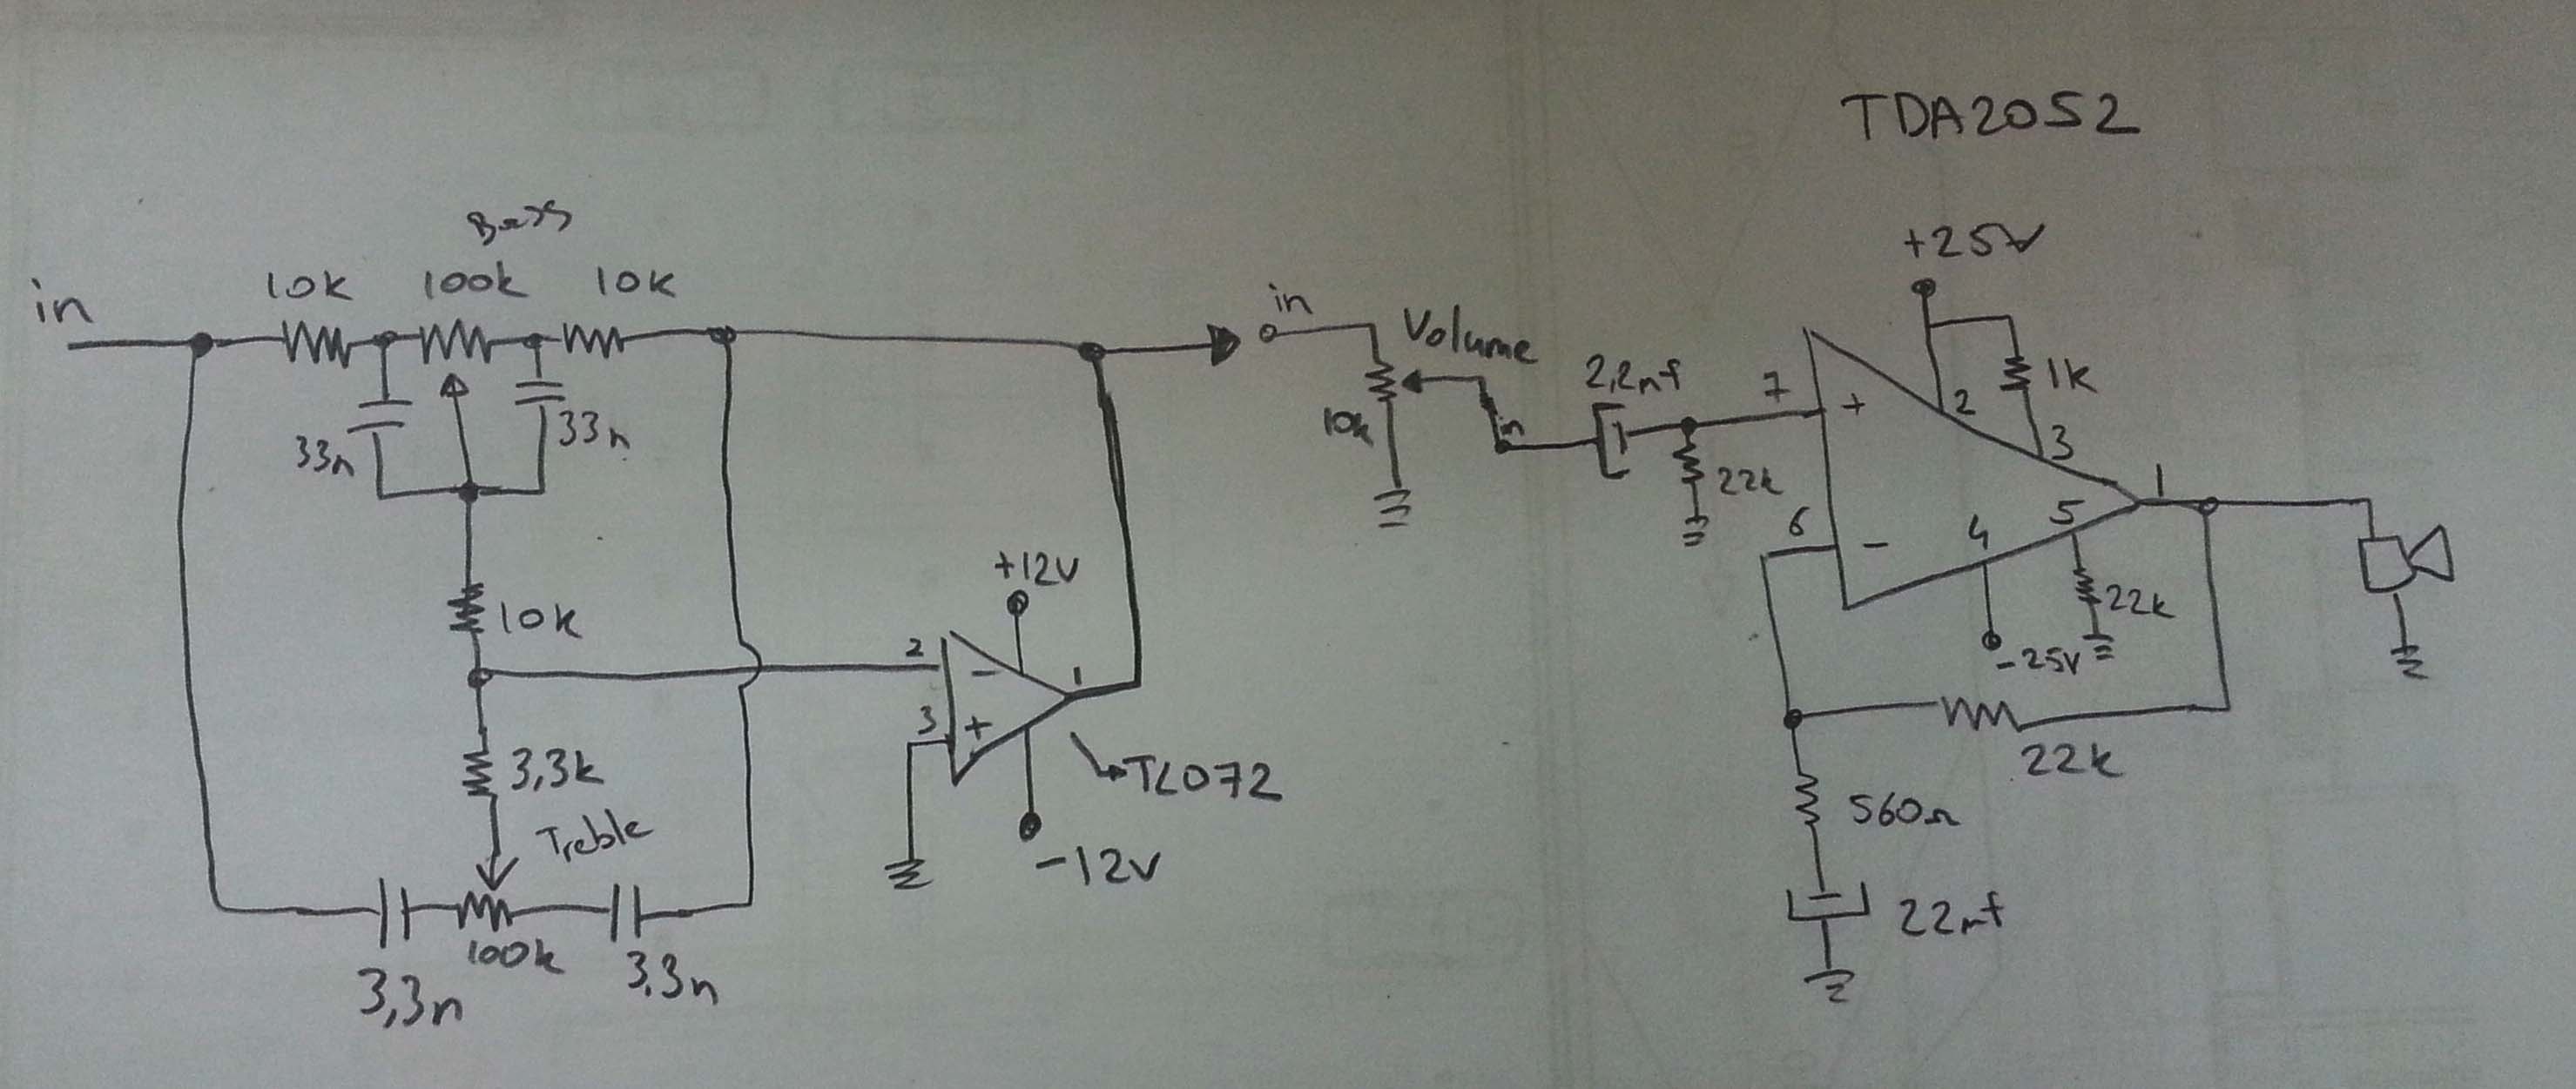 TDA2052
+25V
Bass
in
10k
100k
10k
33n
33n
10k
3,3k
Treble
100k
3,3n
3.3n
2
3
-
+
1
+12V
-12V
TL072
in
Volume
10k
in
2,2mf
22k
7
+
6
-
2
3
1k
4
5
1
-25V
22k
22k
560Ω
22mf